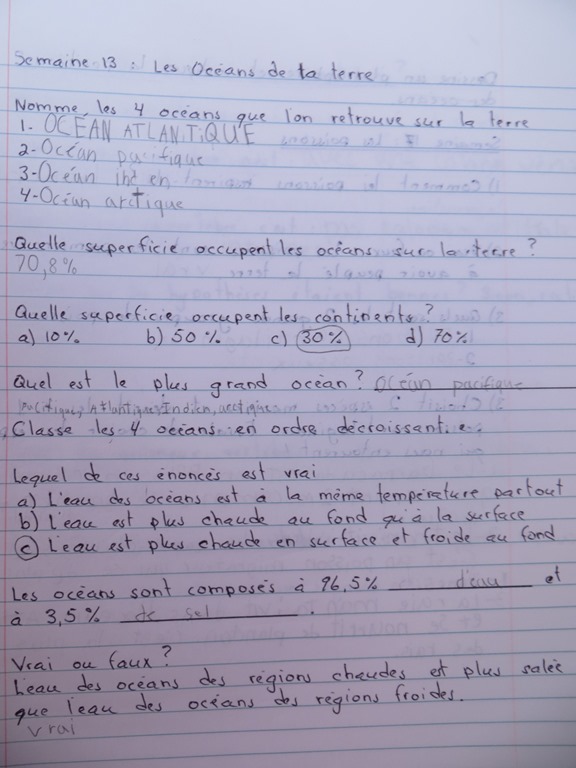 Semaine 13 : Les Océans de la terre
Nomme les 4 océans que l'on retrouve sur la terre
1- OCEAN ATLANTiQUE
2- Océan pacifique
3- Océan
4- Océan arctique
Quelle superficie occupent les océans sur la terre ?
70,8%
Quelle superficie occupent les continents ?
a) 10% b) 50% c) 30% d) 70%
Quel est le plus grand océan ? Océan pacifique
Pacifique, Atlantique, Indien, arctique
Classe les 4 océans en ordre décroissant.
Lequel de ces énoncés est vrai
a) L'eau des océans est à la même température partout
b) L'eau est plus chaude au fond qu'à la surface
c) L'eau est plus chaude en surface et froide au fond
Les océans sont composés à 96,5% d'eau et
à 3,5% de sel .
Vrai ou faux ?
L'eau des océans des régions chaudes est plus salée
que l'eau des océans des régions froides.
vrai